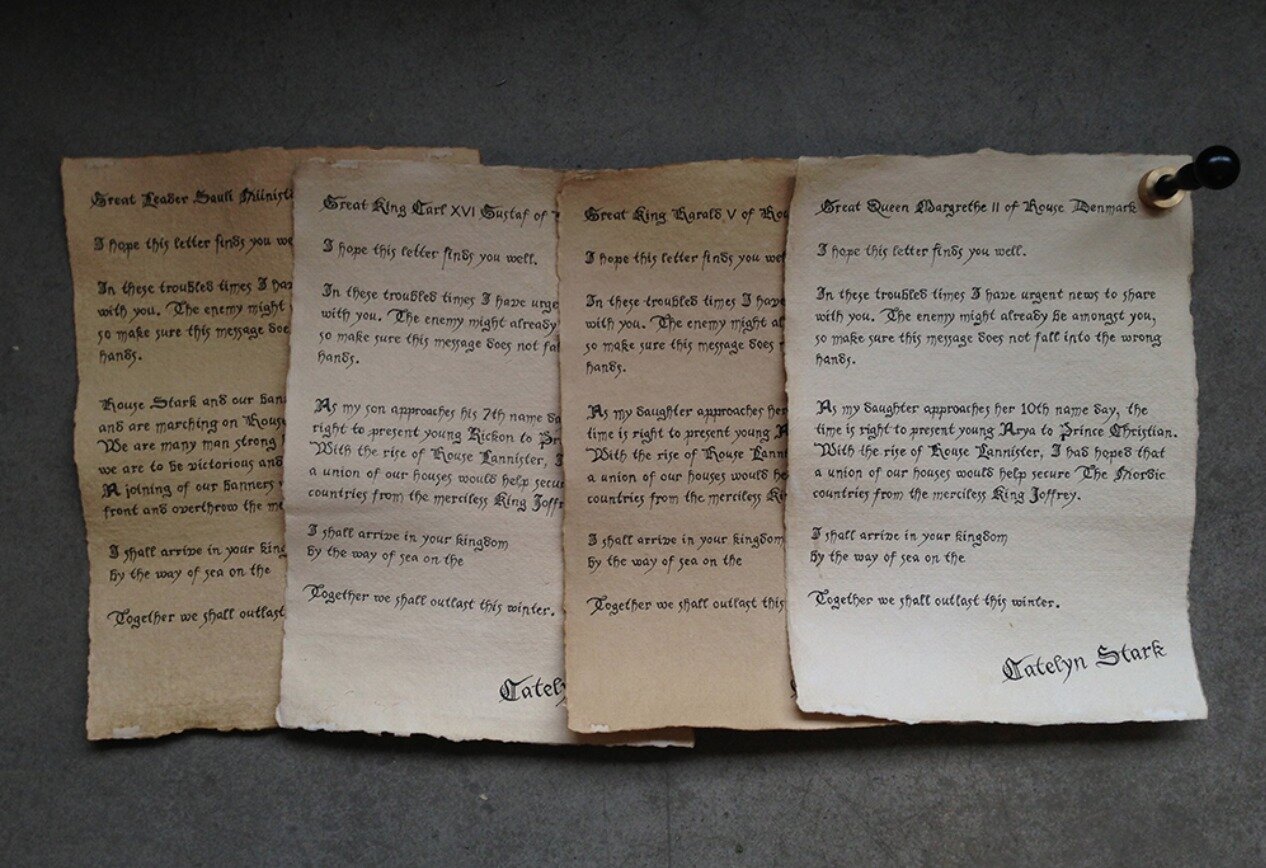 Great Leader Sauli
I hope this letter finds you
In these troubled times I
with you. The enemy might
so make sure this message
hands.
House Stark and our
and are marching on House
We are many man strong
we are to be victorious and
A joining of our banners
front and overthrow the
I shall arrive in your
by the way of sea on the
Together we shall outlast
Great King Carl XVI Gustaf of
I hope this letter finds you well.
In these troubled times I have
with you. The enemy might already
so make sure this message does not
hands.
As my son approaches his 7th name
right to present young Rickon to
With the rise of House Lannister, I
a union of our houses would help
countries from the merciless King
I shall arrive in your kingdom
by the way of sea on the
Together we shall outlast this winter.
Great King Harald V of
I hope this letter finds you
In these troubled times I have
with you. The enemy might
so make sure this message does
hands.
As my daughter approaches her
time is right to present young
With the rise of House
a union of our houses would help
countries from the merciless
I shall arrive in your kingdom
by the way of sea on the
Together we shall outlast this
Great Queen Margrethe II of House Denmark
I hope this letter finds you well.
In these troubled times I have urgent news to share
with you. The enemy might already be amongst you,
so make sure this message does not fall into the wrong
hands.
As my daughter approaches her 10th name day, the
time is right to present young Arya to Prince Christian.
With the rise of House Lannister, I had hoped that
a union of our houses would help secure The Nordic
countries from the merciless King Joffrey.
I shall arrive in your kingdom
by the way of sea on the
Together we shall outlast this winter.
Catelyn Stark